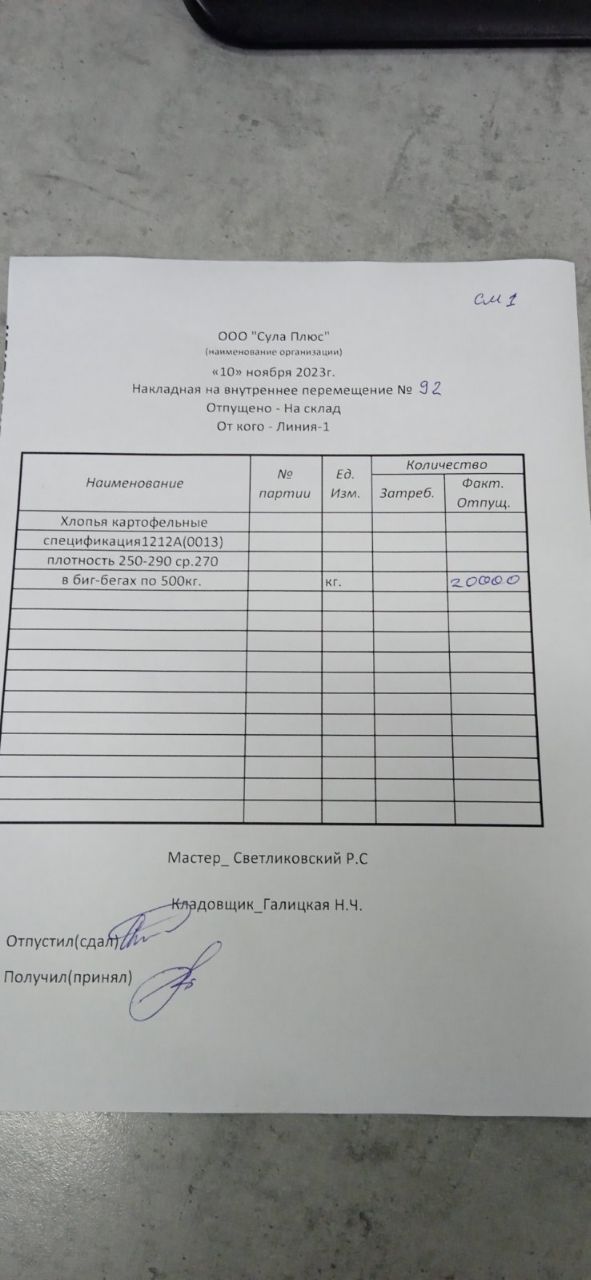 см 1
ООО "Сула Плюс"
(наименование организации)
«10» ноября 2023г.
Накладная на внутреннее перемещение № 92
Отпущено - На склад
От кого - Линия-1
Наименование № партии Ед. Изм. Количество
Затреб. Факт. Отпущ.
Хлопья картофельные
спецификация1212А(0013)
плотность 250-290 ср.270
в биг-бегах по 500кг. кг. 20000
Мастер_ Светликовский Р.С
Кладовщик_Галицкая Н.Ч.
Отпустил(сдал)
Получил(принял)